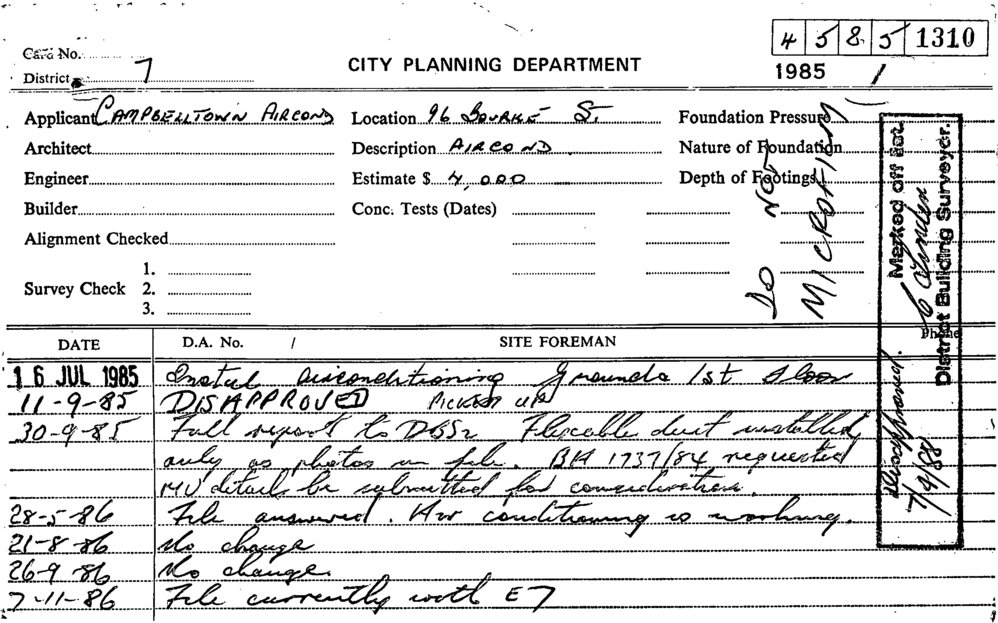 4 5 8 5 1310
Card No.
District 7
CITY PLANNING DEPARTMENT
1985 /
Applicant CAMPBELLTOWN AIRCOND
Location 96 BOURKE ST.
Foundation Pressure
Architect
Description AIRCOND.
Nature of Foundation
Engineer
Estimate $ 4,000
Depth of Footings
Builder
Conc. Tests (Dates)
Alignment Checked
Survey Check
1.
2.
3.
DO NOT
MICROFILM
Marked off list
District Building Surveyor.
Disapproved.
7/9/88
Phone
DATE
D.A. No. /
SITE FOREMAN
16 JUL 1985 Install airconditioning Ground & 1st Floor
11-9-85 DISAPPROVED PICKED UP
30-9-85 Full report to DBS2 Flexable duct installed
only as photos on file. BA 1737/84 requested
MV details be submitted for consideration.
28-5-86 File answered. Air conditioning is working.
21-8-86 No change
26-9-86 No change.
7-11-86 File currently with E7